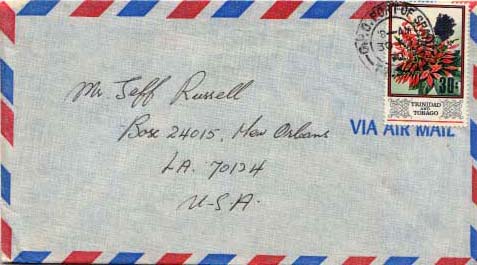 G.P.O. PORT OF SPAIN
8 - AM
30
30¢
TRINIDAD
AND
TOBAGO
VIA AIR MAIL
Mr. Jeff Russell
Box 24015, New Orleans
LA. 70124
U-S-A.